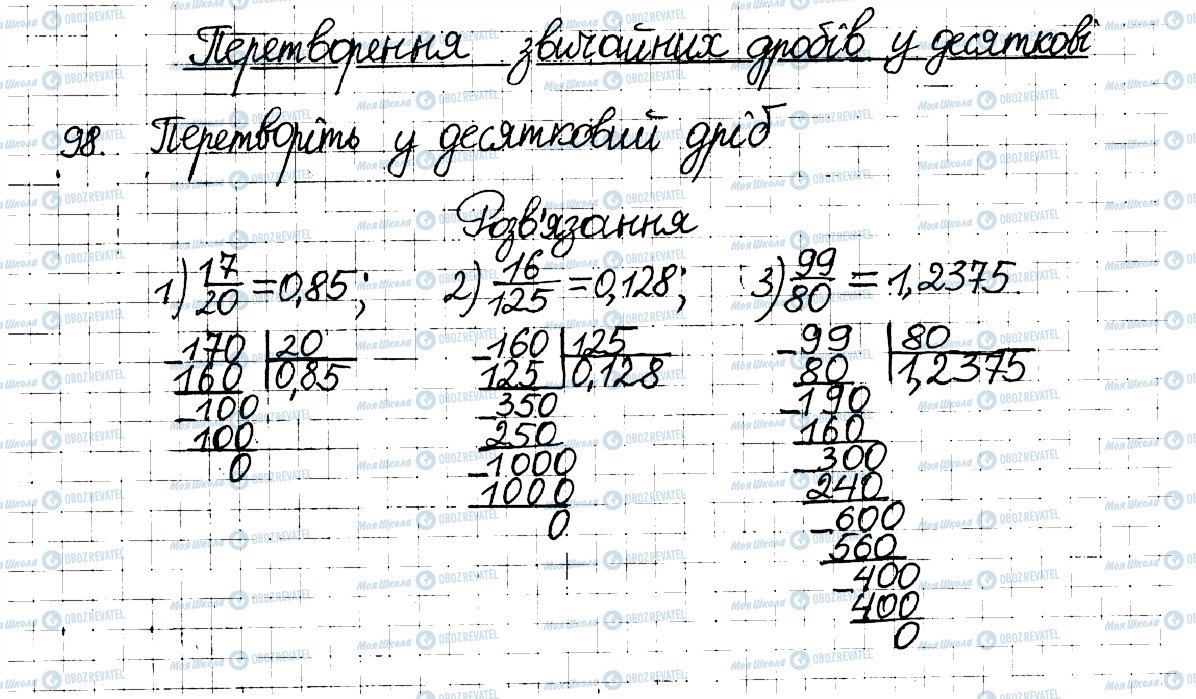 Перетворення звичайних дробів у десяткові
98. Перетворіть у десятковий дріб
Розв'язання
1) 17/20 = 0,85; 2) 16/125 = 0,128; 3) 99/80 = 1,2375
-170 | 20
160 | 0,85
-100
100
0
-160 | 125
125 | 0,128
-350
250
-1000
1000
0
-99 | 80
80 | 1,2375
-190
160
-300
240
-600
560
-400
400
0
Моя Школа OBOZREVATEL